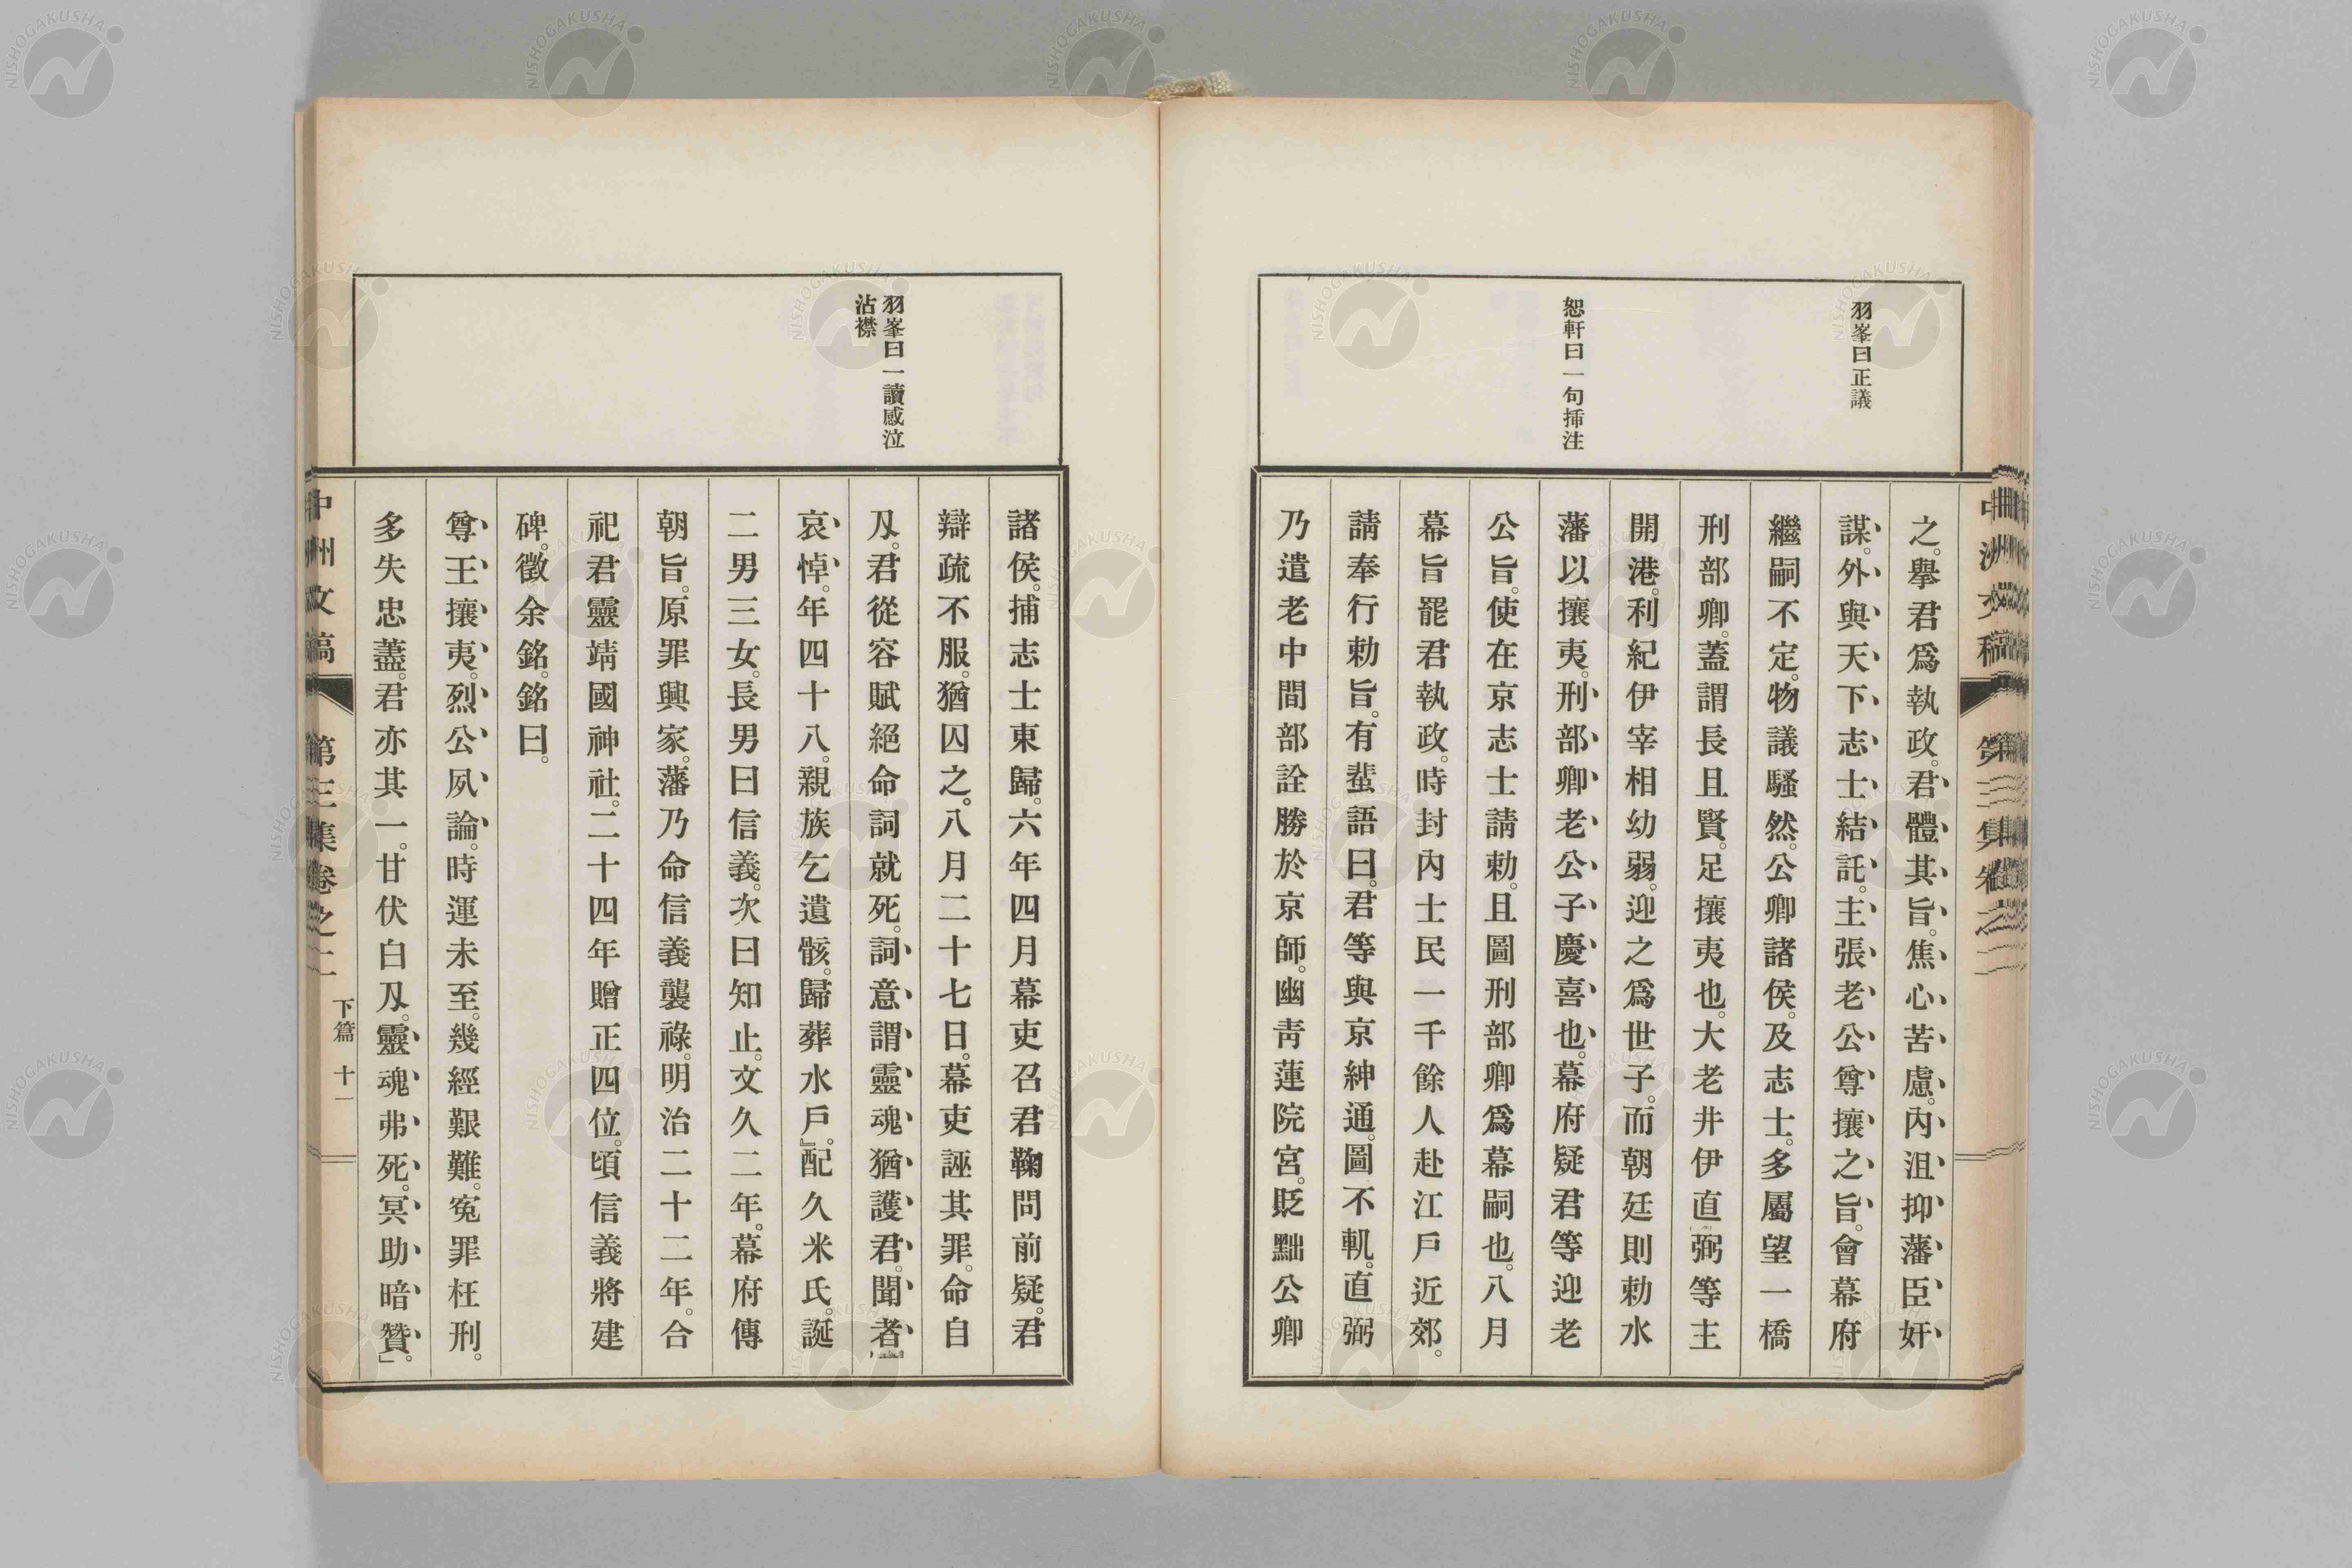 羽峯曰正議
恕軒曰一句揷注
之。擧君爲執政。君體其旨。焦心苦慮。內沮抑藩臣奸
謀。外與天下志士結託。主張老公尊攘之旨。會幕府
繼嗣不定。物議騷然。公卿諸侯。及志士。多屬望一橋
刑部卿。蓋謂長且賢。足攘夷也。大老井伊直弼等主
開港。利紀伊宰相幼弱。迎之爲世子。而朝廷則勅水
藩以攘夷。刑部卿老公子慶喜也。幕府疑君等迎老
公旨。使在京志士請勅。且圖刑部卿爲幕嗣也。八月
幕旨罷君執政。時封內士民一千餘人赴江戶近郊。
請奉行勅旨。有蜚語曰。君等與京紳通。圖不軌。直弼
乃遣老中間部詮勝於京師。幽靑蓮院宮。貶黜公卿
中洲文稿 第三集卷之二
羽峯曰一讀感泣
沾襟
諸侯。捕志士東歸。六年四月幕吏召君鞠問前疑。君
辯疏不服。猶囚之。八月二十七日。幕吏誣其罪。命自
及。君從容賦絕命詞就死。詞意謂靈魂猶護君。聞者
哀悼。年四十八。親族乞遺骸。歸葬水戶。』配久米氏。誕
二男三女。長男曰信義。次曰知止。文久二年。幕府傳
朝旨。原罪興家。藩乃命信義襲祿。明治二十二年。合
祀君靈靖國神社。二十四年贈正四位。頃信義將建
碑。徵余銘。銘曰。
尊王攘夷。烈公夙論。時運未至。幾經艱難。寃罪枉刑。
多失忠藎。君亦其一。甘伏白及。靈魂弗死。冥助暗贊。」
中洲文稿 第三集卷之二 下篇 十一